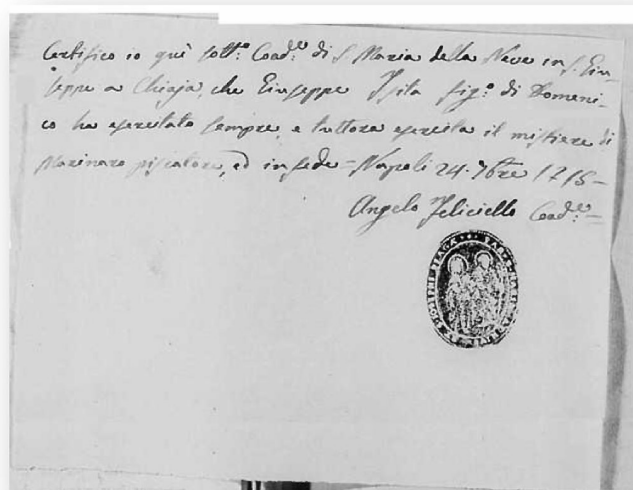 Certifico io quì sott:º Coad:re di S. Maria della Neve in S. Giu
seppe a Chiaja, che Giuseppe figº: di Domeni
co ha esercitato sempre, e tuttora esercita il mistiere di
Marinaro piscatore, ed in fede = Napoli 24. 7bre
Angelo Feliciello Coad:re =